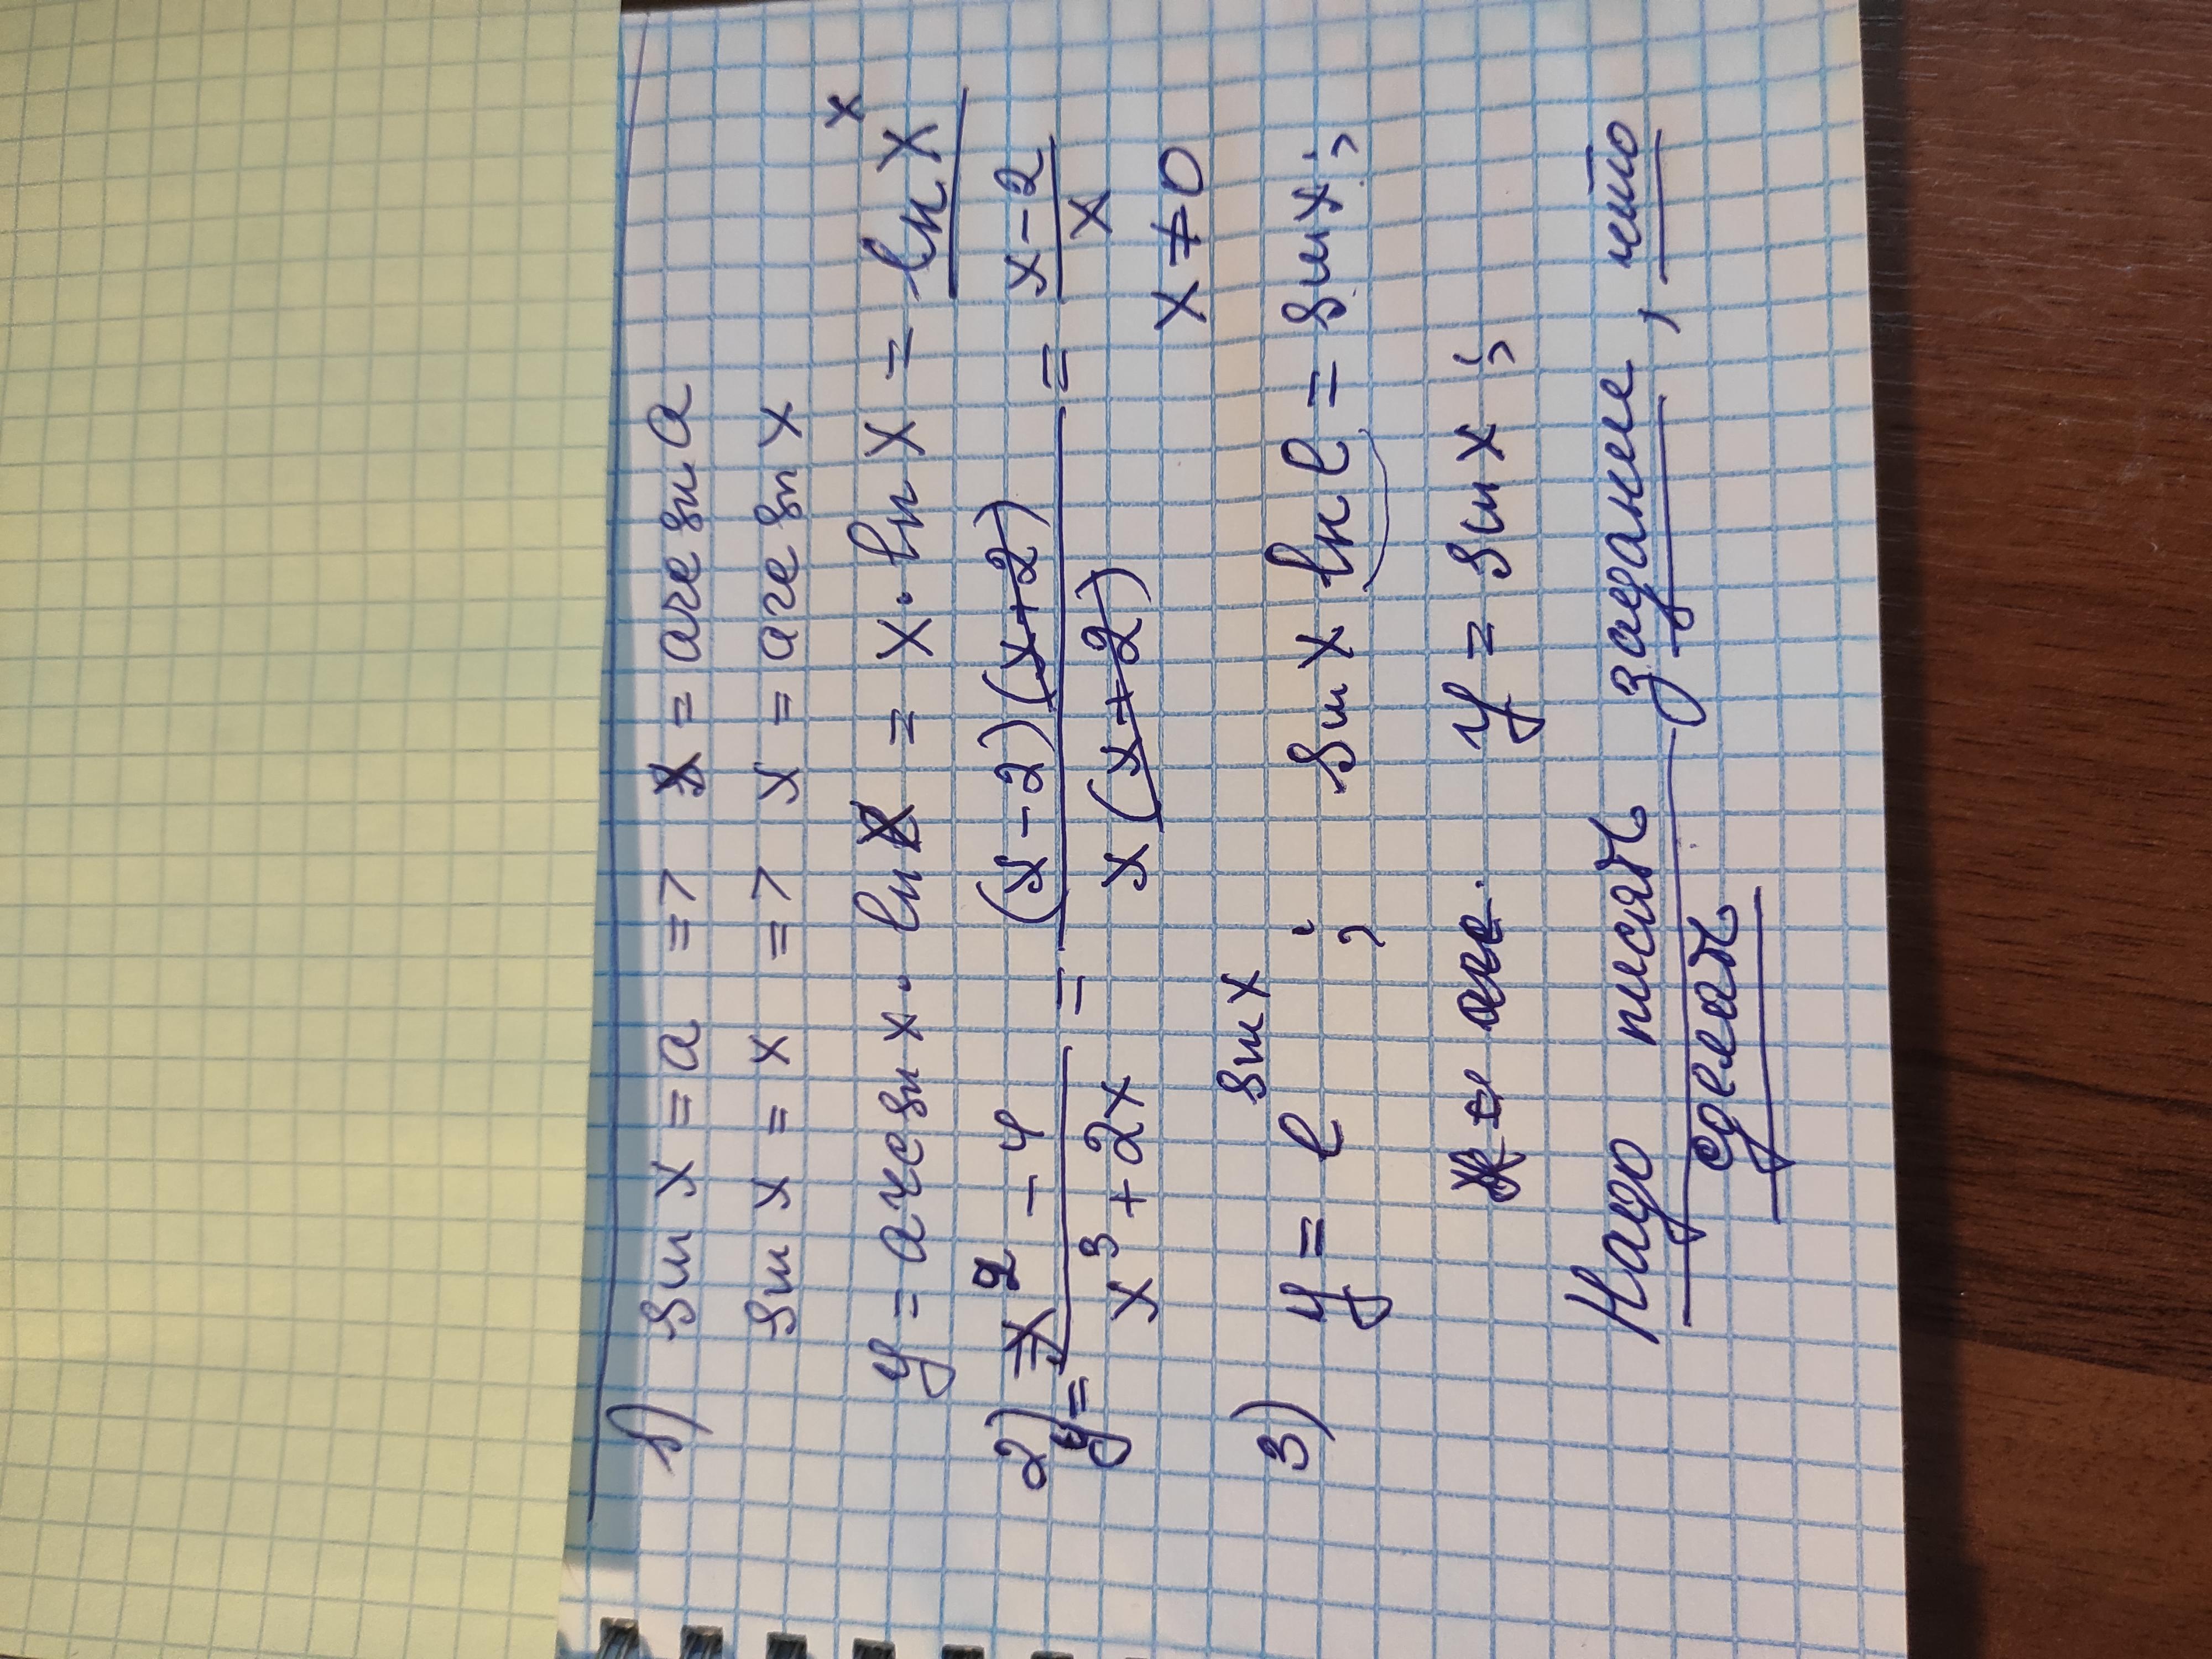 1) sin x = a => x = arcsin a
sin x = x => x = arcsin x
y = arcsin x · ln x = x · ln x = ln x^x
2) y = (x² - 4)/(x³ + 2x) = ((x-2)(x+2))/(x(x+2)) = (x-2)/x
x ≠ 0
3) y = e^(sin x) ; sin x ln e = sin x ;
y = sin x ;
Надо писать задание, что
сделать